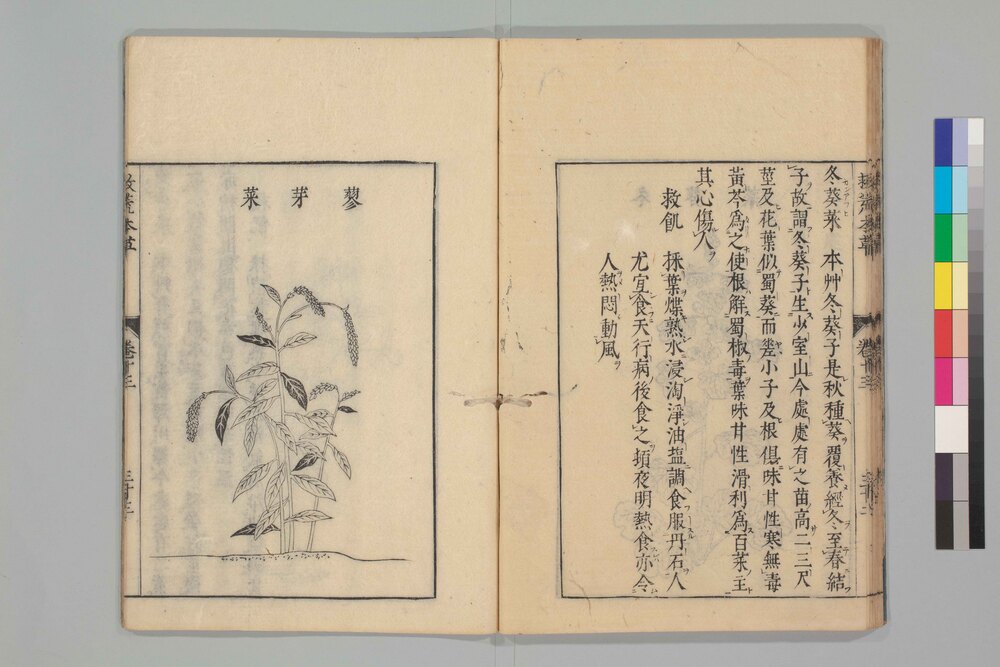 冬葵菜　本艸冬葵子是秋種葵覆養經冬至春結
子故謂冬葵子生少室山今處處有之苗高二三尺
莖及花葉似蜀葵而差小子及根俱味甘性寒無毒
黃芩爲之使根解蜀椒毒葉味甘性滑利爲百菜主
其心傷人
救飢　採葉煠熟水浸淘淨油塩調食服丹石人
尤宜食天行病後食之頓夜明熱食亦令
人熱悶動風
救荒本草
卷十三
蓼芽菜
救荒本草
卷十三
三十三